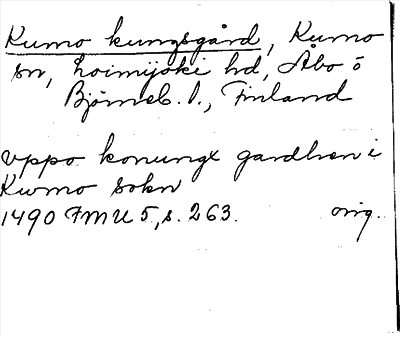 Kumo kungsgård, Kumo
sn, Loimijoki hd, Åbo o
Björneb. l., Finland
vppo konungx gardhen i
Kumo sokn
1490 FMU 5, s. 263. orig.